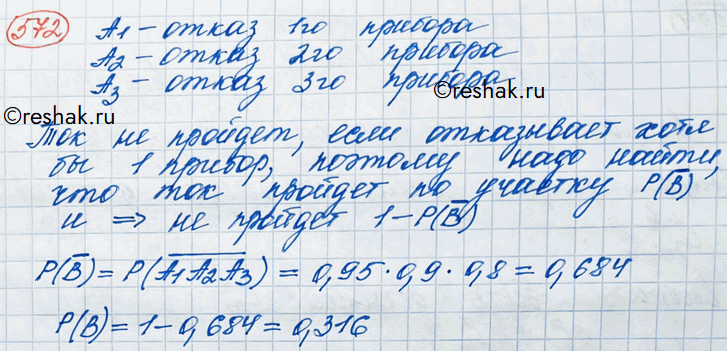 572 A1 – отказ 1го прибора
A2 – отказ 2го прибора
A3 – отказ 3го прибора
©reshak.ru
©reshak.ru
Ток не пройдет, если отказывает хотя
бы 1 прибор, поэтому надо найти,
что ток пройдет по участку P(B̅)
и ⇒ не пройдет 1 – P(B̅)
P(B̅) = P(A̅1̅A̅2̅A̅3̅) = 0,95 · 0,9 · 0,8 = 0,684
P(B) = 1 – 0,684 = 0,316